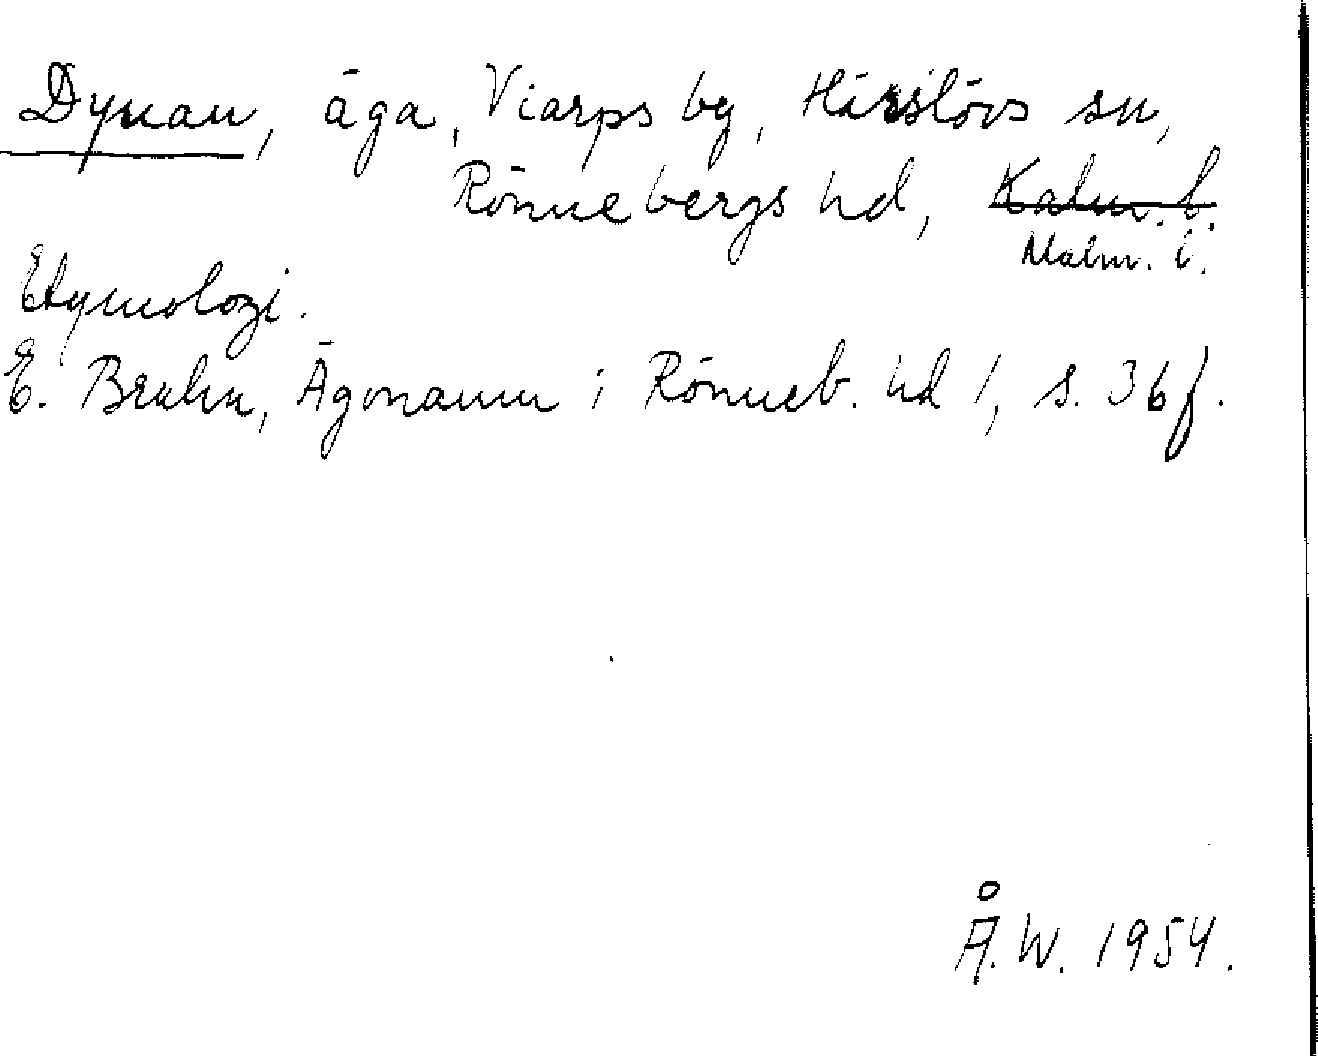 Dynan, äga, Viarps by, Härslövs sn,
Rönnebergs hd, Kalm. l.
Malm. l.
Etymologi.
E. Bruhn, Ägonamn i Rönneb. hd 1, s. 36 f.
Å.W. 1954.